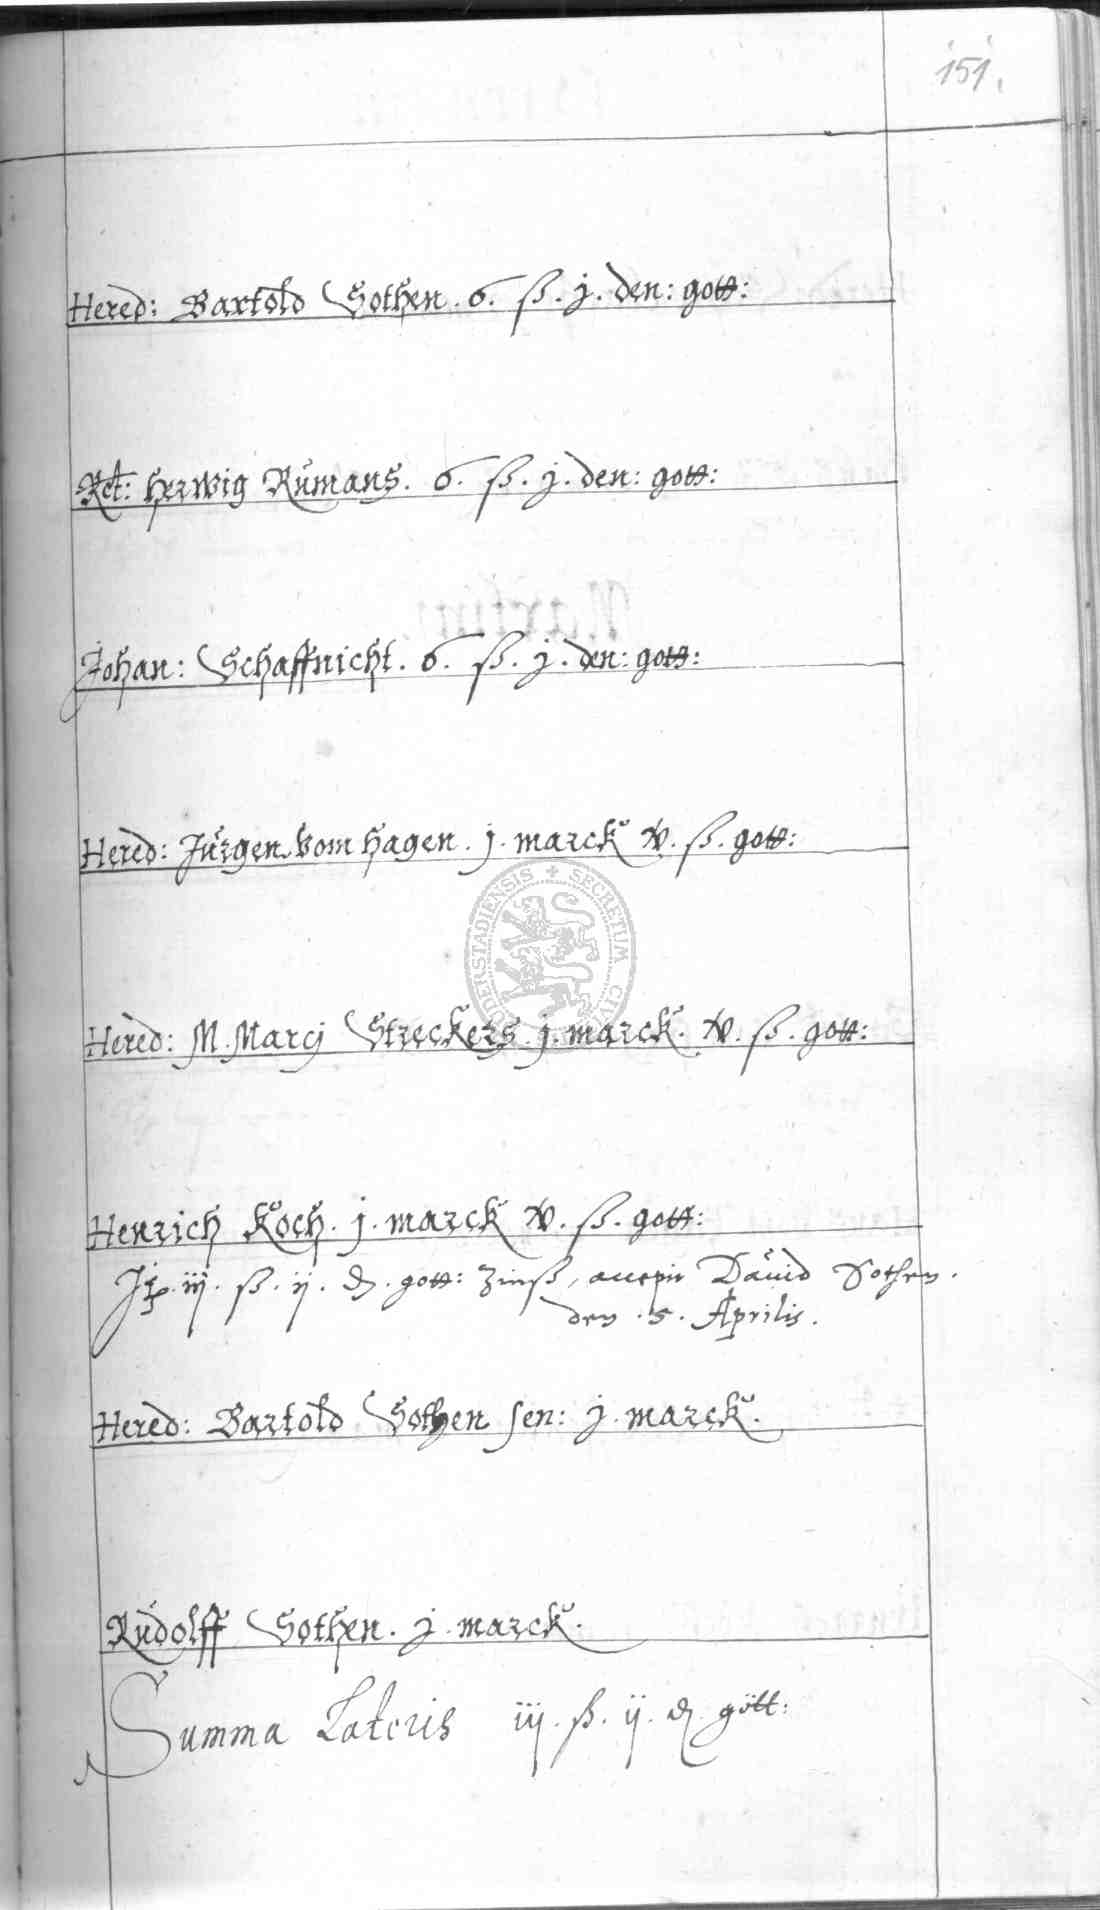 151.
Hered: Bartold Sothen. 6. ß. j. den: gott:
Rct: Herwig Rümans. 6. ß. j. den: gott:
Johan: Schaffnicht. 6. ß. j. den: gott:
Hered: Jürgen Vom Hagen. j. marck v. ß. gott:
Hered: M. Marcj Streckers. j. marck. v. ß. gott:
Henrich Koch. j. marck v. ß. gott:
iij. ß. ij. ₰. gott: Zinß, accepit Dauid Sothen.
den. 5. Aprilis.
Hered: Bartold Sothen sen: j. marck.
Rudolff Sothen. j. marck.
Summa Lateris iij. ß. ij. ₰. gött:
SECRETUM CIVI DERSTADIENSIS